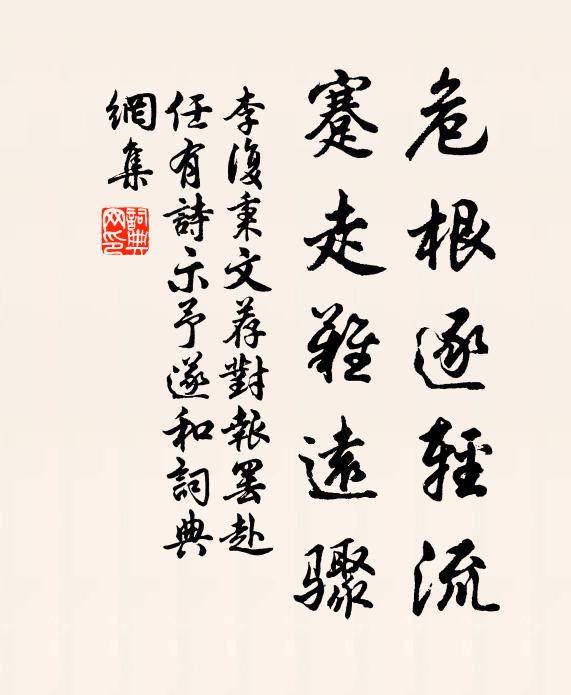 危根逐輕流
蹇走難遠驟
李復秉文荐對報罷赴
任有詩示予遂和詞典
網集
詞典网印